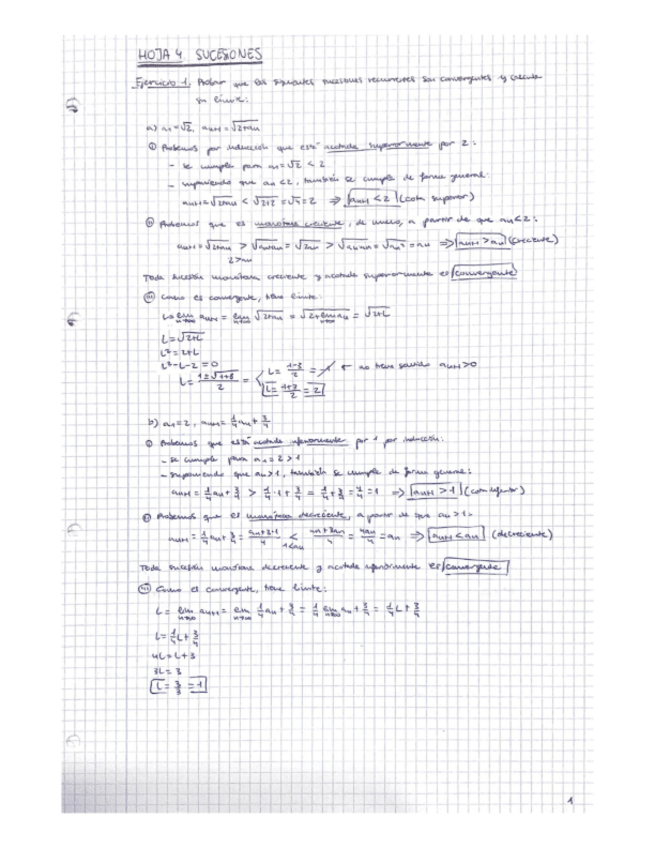 HOJA 4 SUCESIONES
Ejercicio 1. Probar que las siguientes sucesiones recurrentes son convergentes y calcule
su límite:
a) a₁=√2, aₙ₊₁=√(2+aₙ)
Ⓘ Probemos por inducción que está acotada superiormente por 2:
- se cumple para a₁=√2 < 2
- suponiendo que aₙ<2, también se cumple de forma general:
aₙ₊₁=√(2+aₙ) < √(2+2) = √4 = 2 ⇒ aₙ₊₁ < 2 (cota superior)
Ⓘⓘ Probemos que es monótona creciente, de nuevo, a partir de que aₙ<2:
aₙ₊₁=√(2+aₙ) > √(aₙ+aₙ) = √(2aₙ) > √(aₙ·aₙ) = √(aₙ²) = aₙ ⇒ aₙ₊₁ > aₙ (creciente)
2>aₙ
Toda sucesión monótona creciente y acotada superiormente es convergente
ⓘⓘⓘ Como es convergente, tiene límite:
L = lim n→∞ aₙ₊₁ = lim n→∞ √(2+aₙ) = √(2+lim n→∞ aₙ) = √(2+L)
L=√(2+L)
L²=2+L
L²-L-2=0
L = (1±√(1+8))/2 = L = (1-3)/2 = -1 ← no tiene sentido aₙ₊₁>0
L = (1+3)/2 = 2
b) a₁=2, aₙ₊₁ = 1/4 aₙ + 3/4
Ⓘ Probemos que está acotada inferiormente por 1 por inducción:
- se cumple para a₁=2>1
- suponiendo que aₙ>1, también se cumple de forma general:
aₙ₊₁ = 1/4 aₙ + 3/4 > 1/4·1 + 3/4 = 1/4 + 3/4 = 4/4 = 1 ⇒ aₙ₊₁ > 1 (cota inferior)
Ⓘⓘ Probemos que es monótona decreciente, a partir de que aₙ>1:
aₙ₊₁ = 1/4 aₙ + 3/4 = (aₙ+3·1)/4 < (aₙ+3aₙ)/4 = 4aₙ/4 = aₙ ⇒ aₙ₊₁ < aₙ (decreciente)
1<aₙ
Toda sucesión monótona decreciente y acotada inferiormente es convergente
ⓘⓘⓘ Como es convergente, tiene límite:
L = lim n→∞ aₙ₊₁ = lim n→∞ 1/4 aₙ + 3/4 = 1/4 lim n→∞ aₙ + 3/4 = 1/4 L + 3/4
L = 1/4 L + 3/4
4L = L+3
3L = 3
L = 3/3 = 1
1